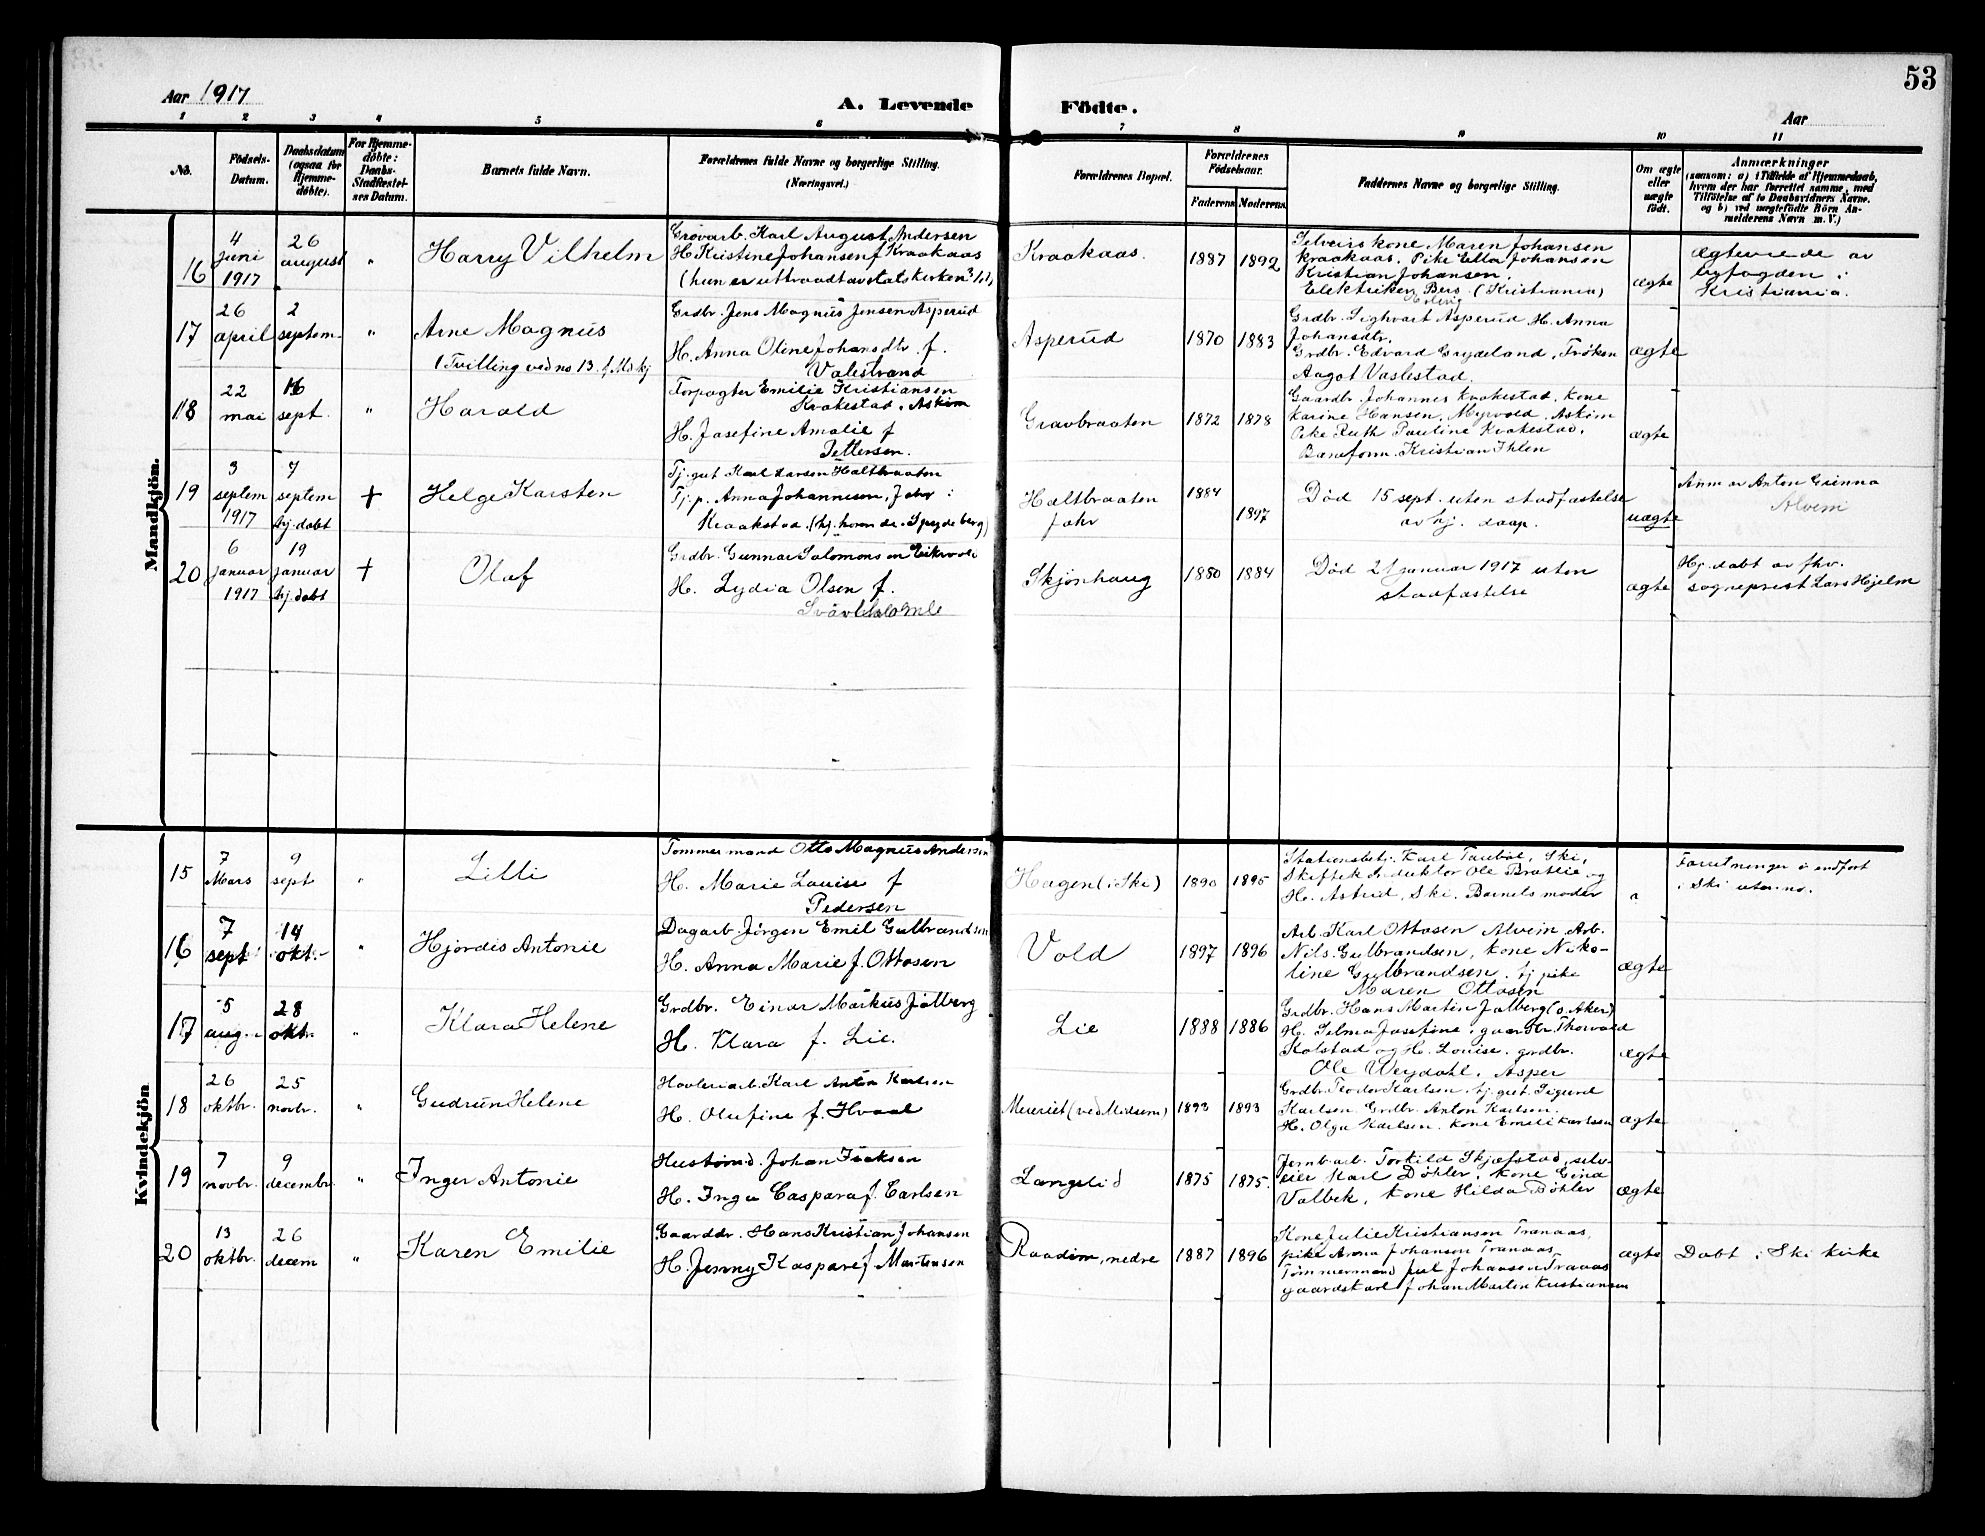 53
Aar 1917
A. Levende
Födte.
Aar
1 2 3 4 5 6 7 8 9 10 11
No.
Födsels-
Datum.
Daabsdatum
(ogsaa for
Hjemme-
döbte).
For Hjemme-
döbte:
Daabs-
Stadfæstel-
ses Datum.
Barnets fulde Navn.
Forældrenes fulde Navne og borgerlige Stilling.
(Næringsvei.)
Forældrenes Bopæl.
Forældrenes
Födselsaar.
Faderens
Moderens
Faddernes Navne og borgerlige Stilling.
Om ægte
eller
uægte
födt.
Anmærkninger
(saasom: a) i Tilfælde af Hjemmedaab,
hvem der har forrettet samme, med
Tilföielse af to Daabsvidners Navne.
og b) ved uægtefödte Börn An-
melderens Navn m. V.)
Mandkjön.
16
4
juni
1917
26
august
"
Harry Vilhelm
Grovarb. Karl August Andersen
H. Kristine Johansen f. Kraakaas
(hun er uttraadt av statskirken
Kraakaas.
1887
1892
Selveirs kone Maren Johansen
Kraakaas, Pike Ella Johansen
Kristian Johansen,
Elektriker Berg (Kristiania)
ægte
Ægteviede av
byfogden i
Kristiania.
17
26
april
2
septem.
"
Arne Magnus
(Tvilling ved no 13 f. Mskj
Grdbr. Jens Magnus Jensen Asperud
H. Anna Oline Johansdtr. f.
Valestrand
Asperud
1870
1883
Grdbr. Sighvart Asperud H. Anna
Johansdtr.
Grdbr. Edvard Grydeland, Frøken
Aagot Vaslestad.
ægte
18
22
mai
16
sept.
"
Harald
Forpagter Emilie Kristiansen
Krakestad, Askim
H. Josefine Amalie f
Pettersen.
Gravbraaten
1872
1878
Gaardbr. Johannes Krakestad, kone
Karine Hansen, Myrvold, Askim
Pike Ruth Pauline Krakestad,
Baneform. Kristian Ihlen
ægte
19
3
septem
1917
7
septem
hj. døbt
+
Helge Karsten
Tj. gut Karl Larsen Haltbraaten
Tj. p. Anna Johannesen, Fahr i
Kraakstad (hj. horende i Spydeberg)
Haltbraaten
Fahr
1884
1897
Død 15 sept. uten stadfæstelse
av hj. daap.
uægte
Anm av Anton Grinna
Alvern
20
6
januar
1917
19
januar
hj. døbt
+
Olaf
Grdbr. Gunnar Salomonsen Eikvoll
H. Lydia Olsen f.
Skjønhaug
1880
1884
Død 21 januar 1917 uten
stadfæstelse
ægte
Hj. døbt av fhv.
sogneprest Lars Hjelm
Kvindekjön
15
7
Mars
9
sept
"
Lilli
Tømmermand Otto Magnus Andersen
H. Marie Louise f
Pedersen
Hagen (i Ski)
1890
1895
Stationsbetj. Karl Taubøl, Ski,
Skiftekonduktør Ole Bratlie og
H. Astrid, Ski, Barnets moder
"
Forretninger i indført
i Ski uten no.
16
7
sept.
14
okt.
"
Hjørdis Antonie
Dagarb. Jörgen Emil Gulbrandsen
H. Anna Marie f. Ottosen
Vold
1897
1896
Arb. Karl Ottosen Alvern Arb.
Nils Gulbrandsen, kone Niko-
line Gulbrandsen, tj. pike
Maren Ottosen
ægte
17
5
aug.
28
okt.
"
Klara Helene
Grdbr. Einar Markus Jølberg
H. Klara f. Lie.
Lie
1888
1886
Grdbr. Hans Martin Jølberg (ø. Aker)
H. Selma Josefine, gaardbr. Thorvald
Kolstad og H. Louise, grdbr.
Ole Weydahl, Asper
ægte
18
26
oktbr.
25
novbr.
"
Gudrun Helene
Høvleriarb. Karl Anton Karlsen
H. Olufine f. Hvaal
Meieriet (ved Midsem)
1893
1893
Grdbr. Teodor Karlsen, tj. gut Sigurd
Karlsen, Grdbr. Anton Karlsen,
H. Olga Karlsen, kone Emilie Karlsen
ægte
19
7
novbr.
9
decembr.
"
Inger Antonie
Hustømd. Johan Isaksen
H. Inga Caspara f. Carlsen
Langelid
1875
1875.
Jernb. arb. Torkild Skjæfstad, selv-
eier Karl Døhler, kone Gina
Valbek, kone Hilda Døhler
ægte
20
13
oktbr.
26
decem
"
Karen Emilie
Gaardbr. Hans Kristian Johansen
H. Jenny Kaspare f. Martinsen
Raadim, nedre
1887
1896
Kone Julie Kristiansen Tranaas,
pike Anna Johansen Tranaas
Tømmermand Jul. Johansen Tranaas
gaardskarl Johan Martin Kristiansen
ægte
Døbt i Ski kirke